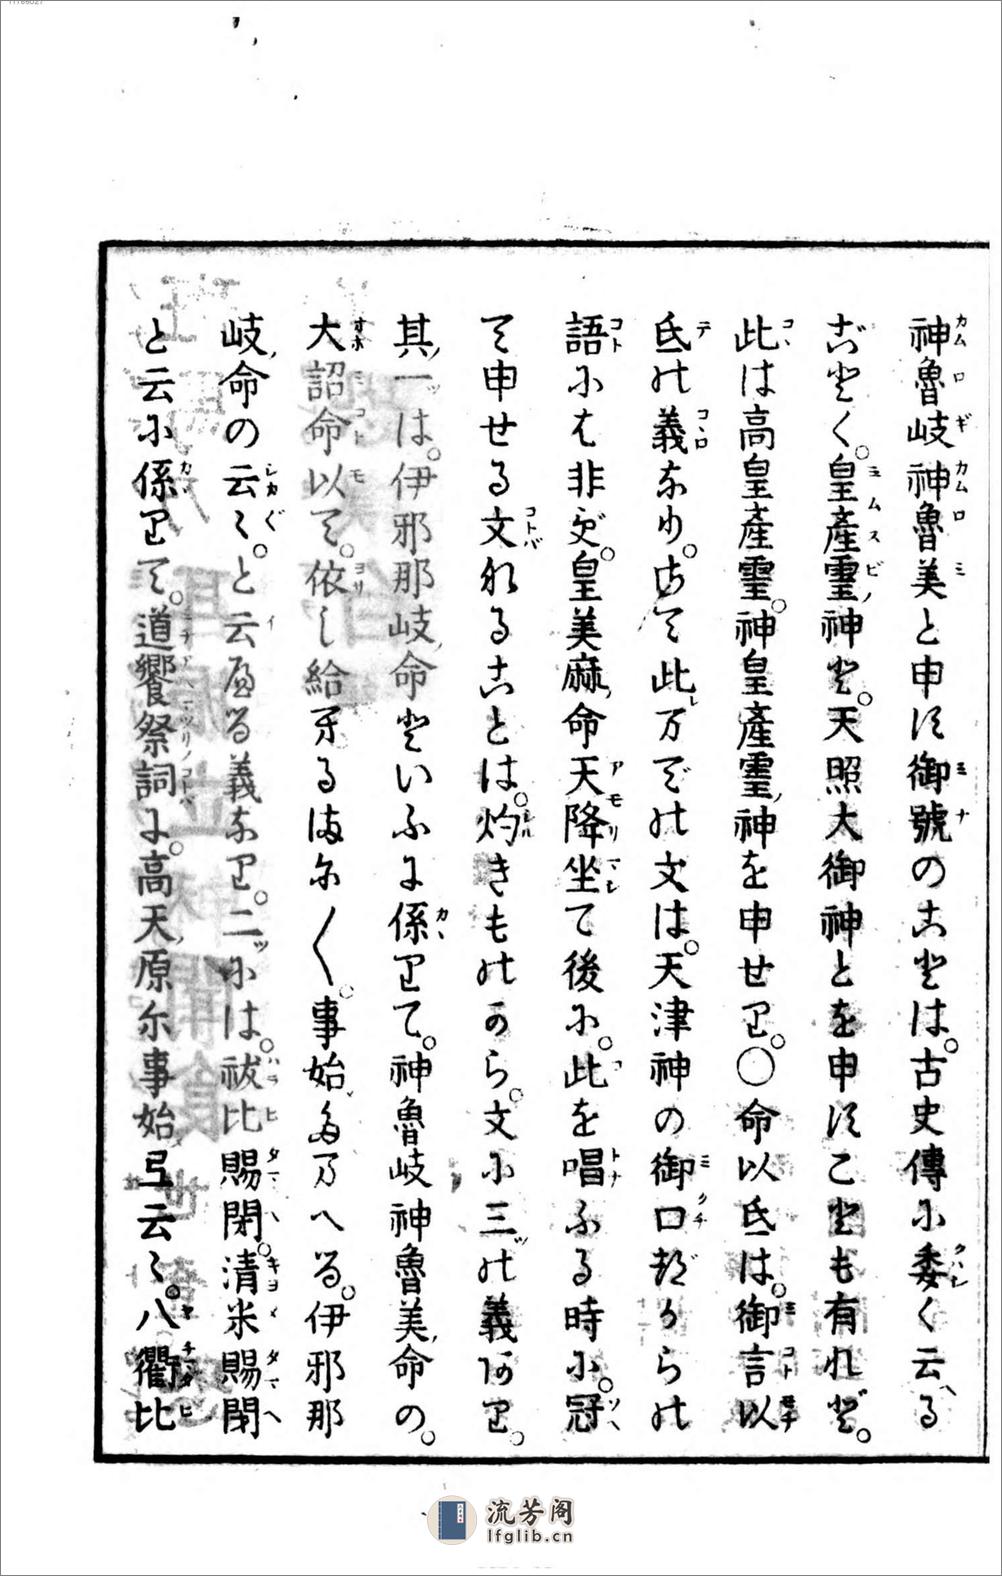 神魯岐神魯美と申す御號のことは。古史傳に委く云る
ごとく。皇產靈神と。天照大御神とを申すことも有れど。
此は高皇產靈。神皇產靈神を申せり。○命以氐は。御言以
氐の義なり。さて此万での文は。天津神の御口づからの
語には非ず。皇美麻命天降坐て後に。此を唱ふる時に。冠
て申せる文なることは。灼きものから。文に三ツの義あり。
其一ツは。伊邪那岐命といふに係りて。神魯岐神魯美命の。
大詔命以て。依し給へるまにまに。事始め万へる。伊邪那
岐命の云々。と云へる義なり。二ツには。祓比賜閇。清米賜閇
と云に係りて。道饗祭詞に。高天原尓事始弖云々。八衢比